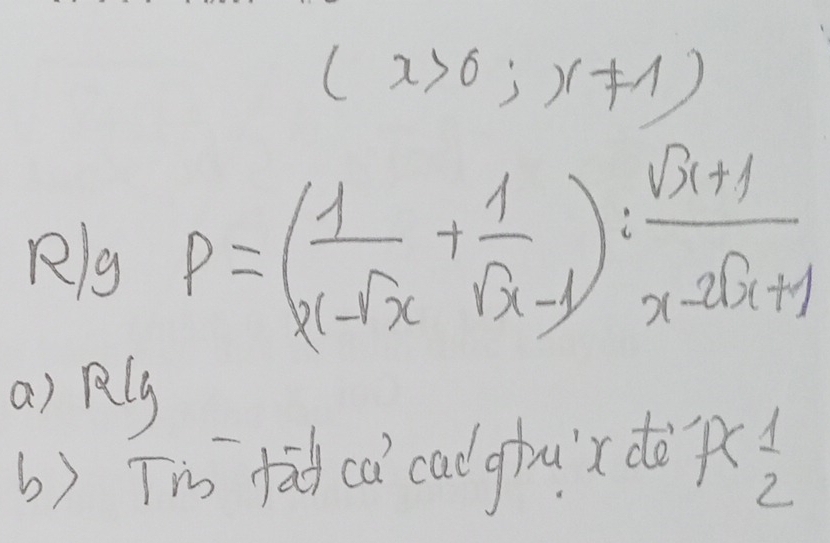 ( x>0 ; x≠1 )
R/g P = (1/(x-√x) + 1/(√x-1)) : (√x+1)/(x-2√x+1)
a) R/g
b) Tìm tất cả các gtrị x để P< 1/2